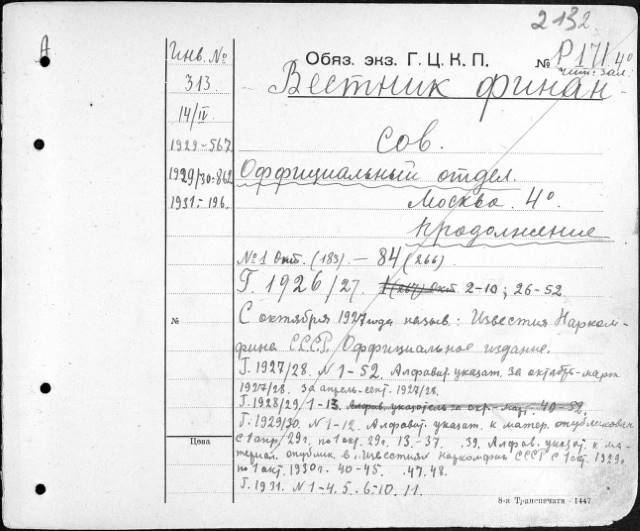 2132
А
Инв. №
313
14/IV
1929-567
1929/30-862
1931-196.
№
Цена
Обяз. экз. Г. Ц. К. П. № Р171 4°
чит. зал.
Вестник финан-
сов.
Оффициальный отдел.
Москва. 4°.
Продолжение
№ 1 Окт. (183). — 84 (266)
Г. 1926/27. 1 (267) Окт 2-10; 26-52
С октября 1927 года назыв.: Известия Нарком-
фина СССР. Оффициальное издание.
Г. 1927/28. N 1-52. Алфавит. указат. за октябрь-март
1927/28. За апрель-сент. 1927/28.
Г. 1928/29. 1-13. Алфав. указатель за окт.-март. 40-52.
Г. 1929/30. N 1-12. Алфавит. указат. к матер. опубликован
с 1 апр. 29г. по 1 окт. 29г. 13.-37. .39. Алфав. указат. к ма-
териал. опублик. в „Известиях Наркомфина СССР“ с 1 окт. 1929г.
по 1 окт. 1930г. 40-45. .47.48.
Г. 1931. N 1-4. 5. 6-10. 11.
8-я Транспечати - 1447